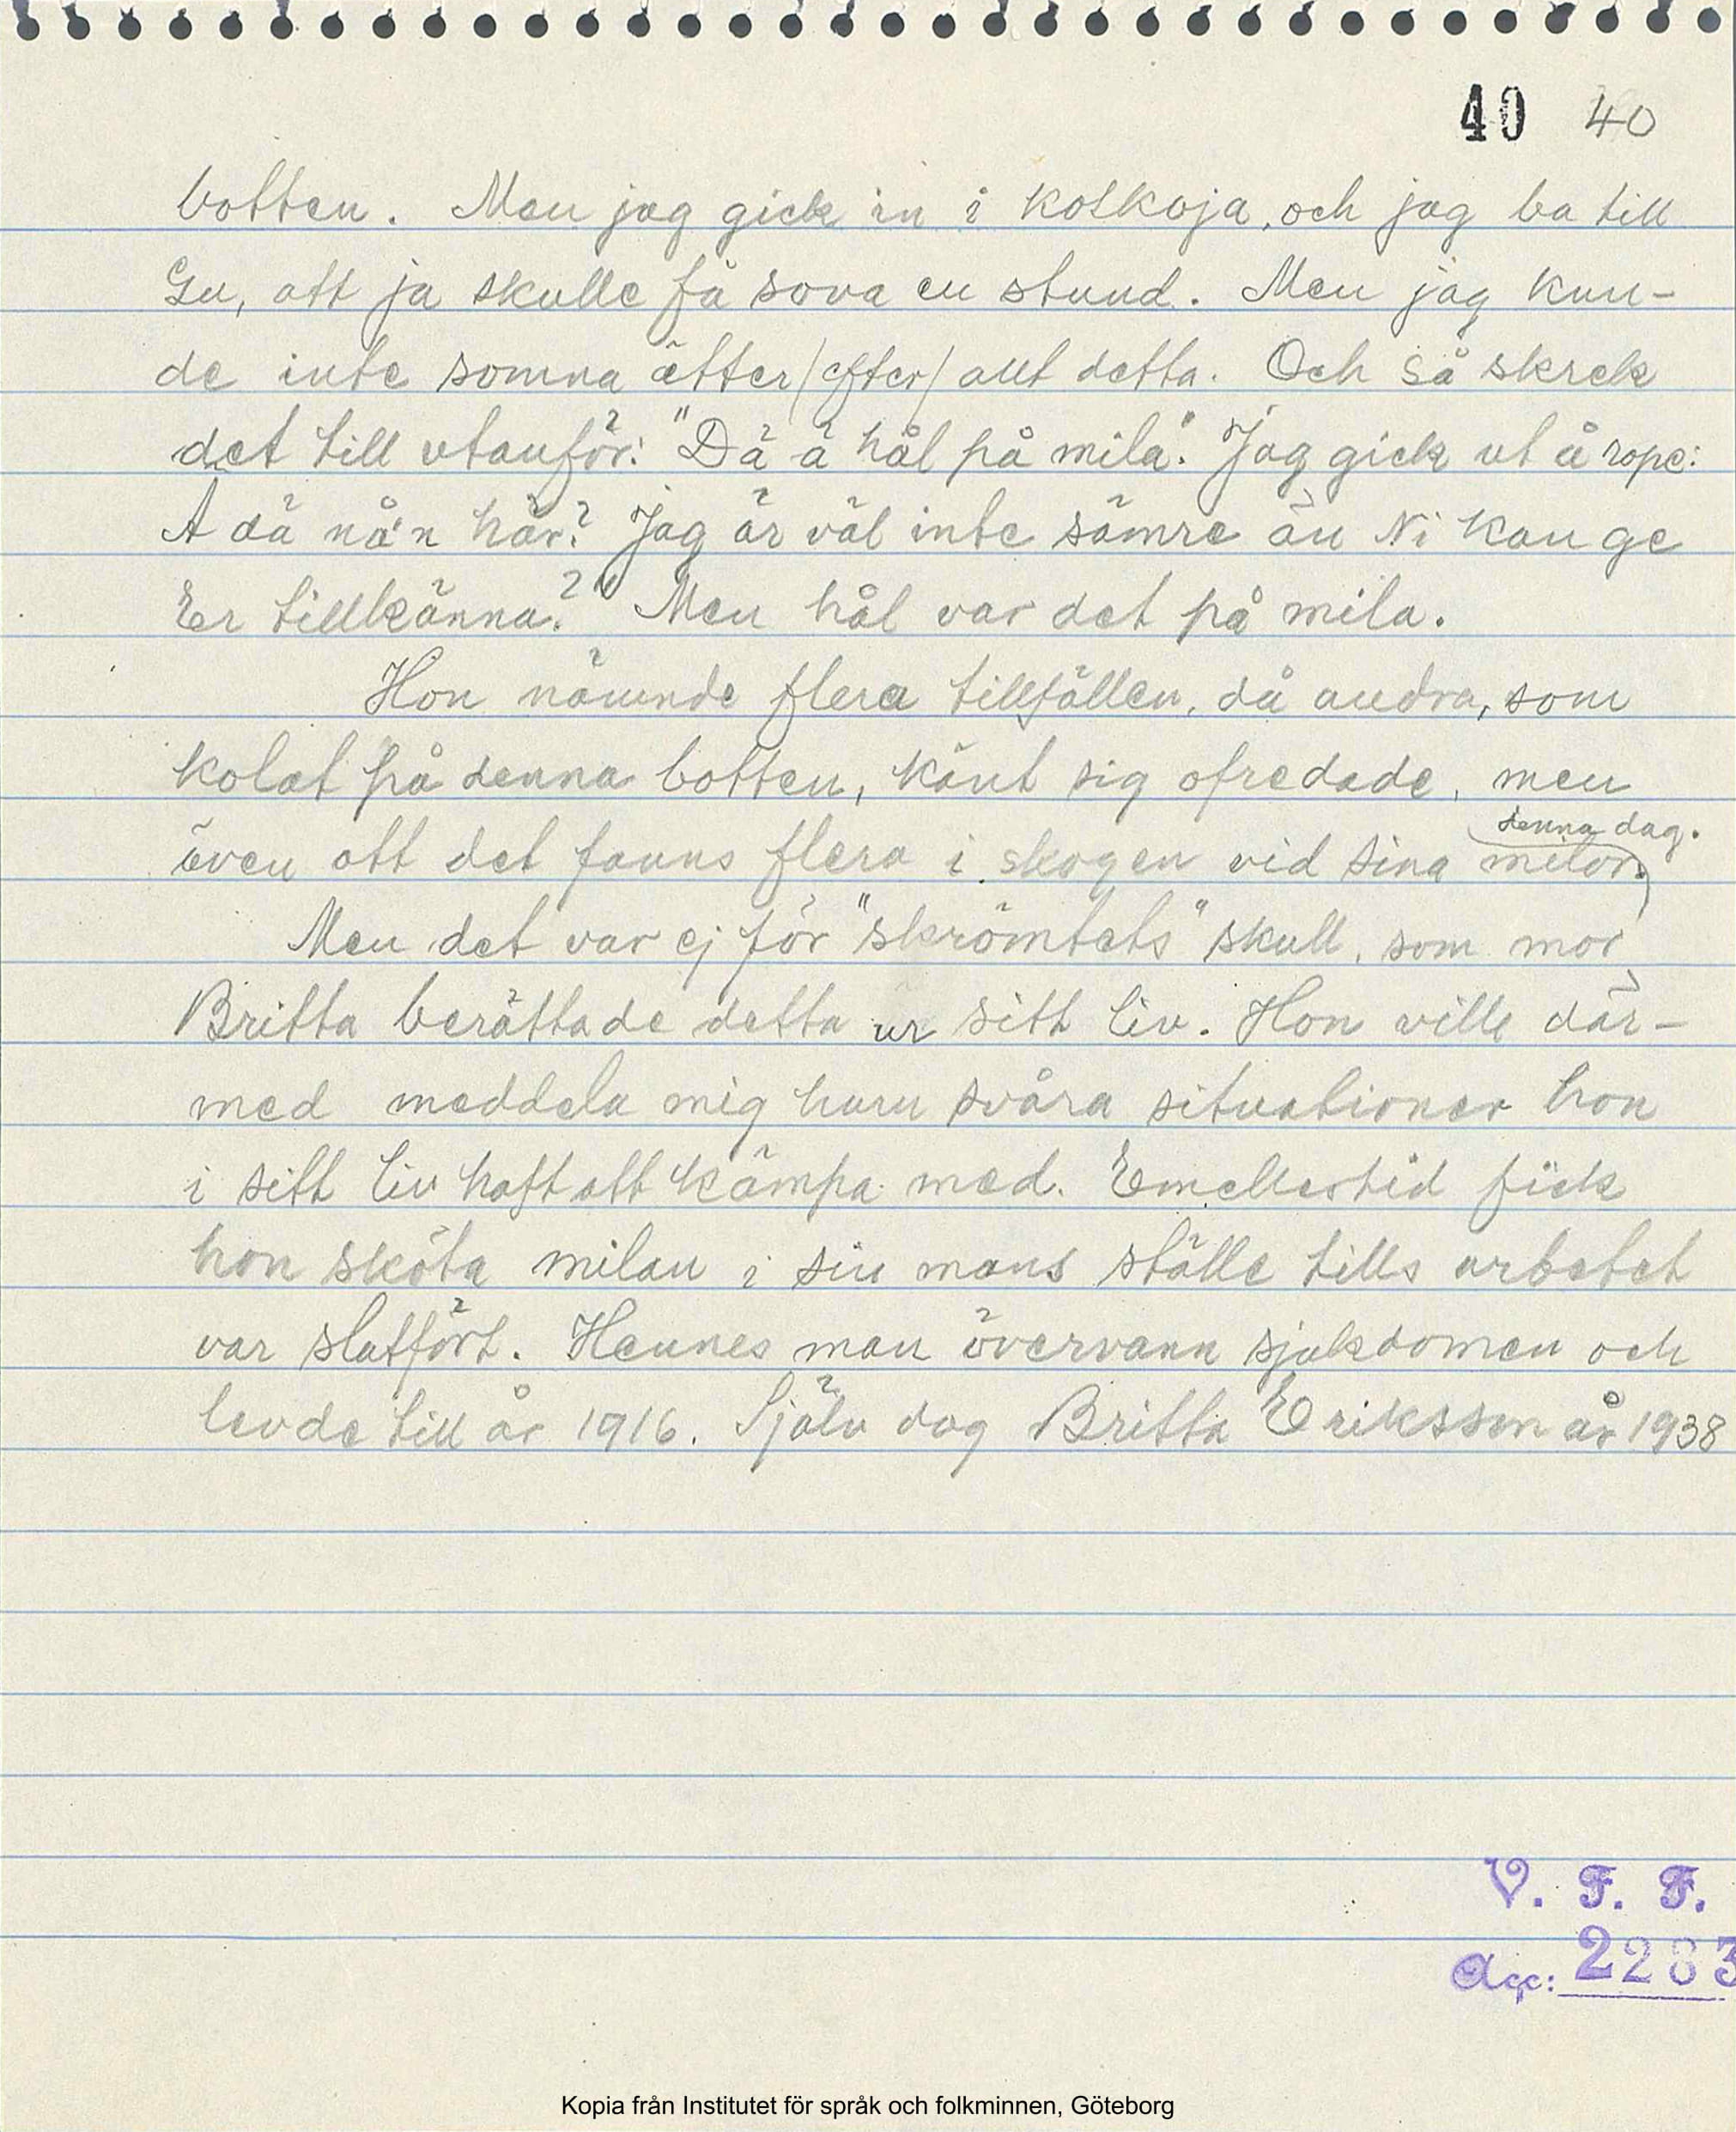 40 40
botten. Men jag gick in i kolkoja, och jag ba till
Gu, att ja skulle få sova en stund. Men jag kun-
de inte somna ätter/efter/allt detta. Och så skrek
det till utanför: "Dä ä hål på mila". Jag gick ut å rope:
Ä dä nå'n här? Jag är väl inte sämre än Ni kan ge
Er tillkänna?" Men hål var det på mila.
Hon nämnde flera tillfällen, då andra, som
kolat på denna botten, känt sig ofredade, men
denna dag.
även att det fanns flera i skogen vid sina milor
Men det var ej för "skrömtets" skull, som mor
Britta berättade detta ur sitt liv. Hon ville där-
med meddela mig huru svåra situationer hon
i sitt liv haft att kämpa med. Emellertid fick
hon sköta milan i sin mans ställe tills arbetet
var slutfört. Hennes man övervann sjukdomen och
levde till år 1916. Själv dog Britta Eriksson år 1938
V. F. F.
Acc: 2283
Kopia från Institutet för språk och folkminnen, Göteborg